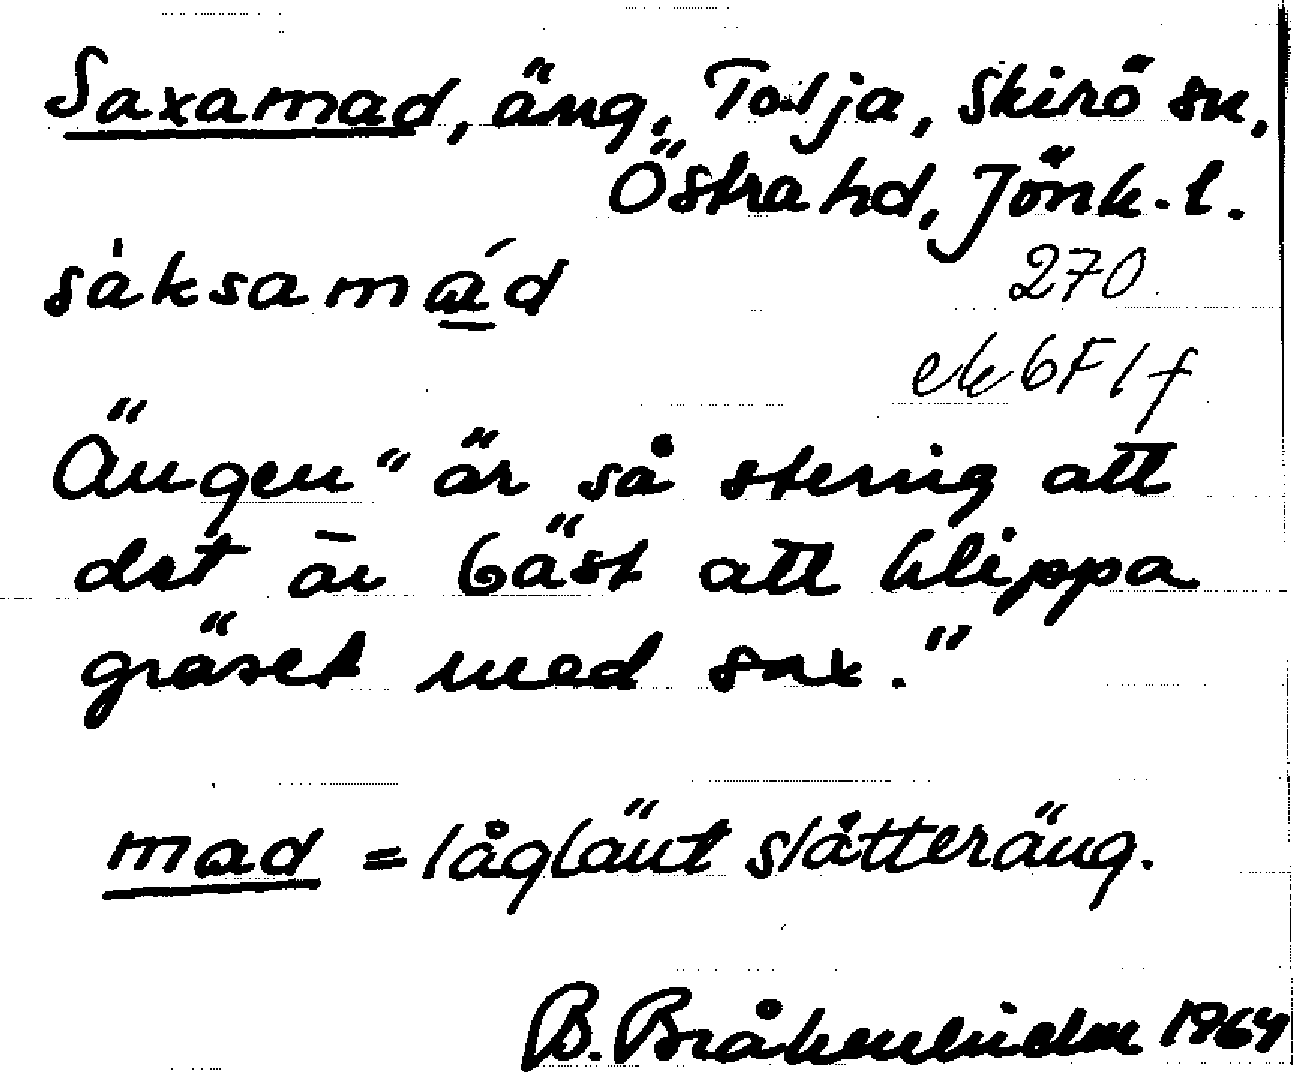 Saxamad, äng, Tolja, Skirö sn,
Östra hd, Jönk.l.
sàksamád
270
ek 6F 1f
Ängen" är så stenig att
det är bäst att klippa
gräset med sax."
mad = låglänt slåtteräng.
B. Bråkenhielm 1964